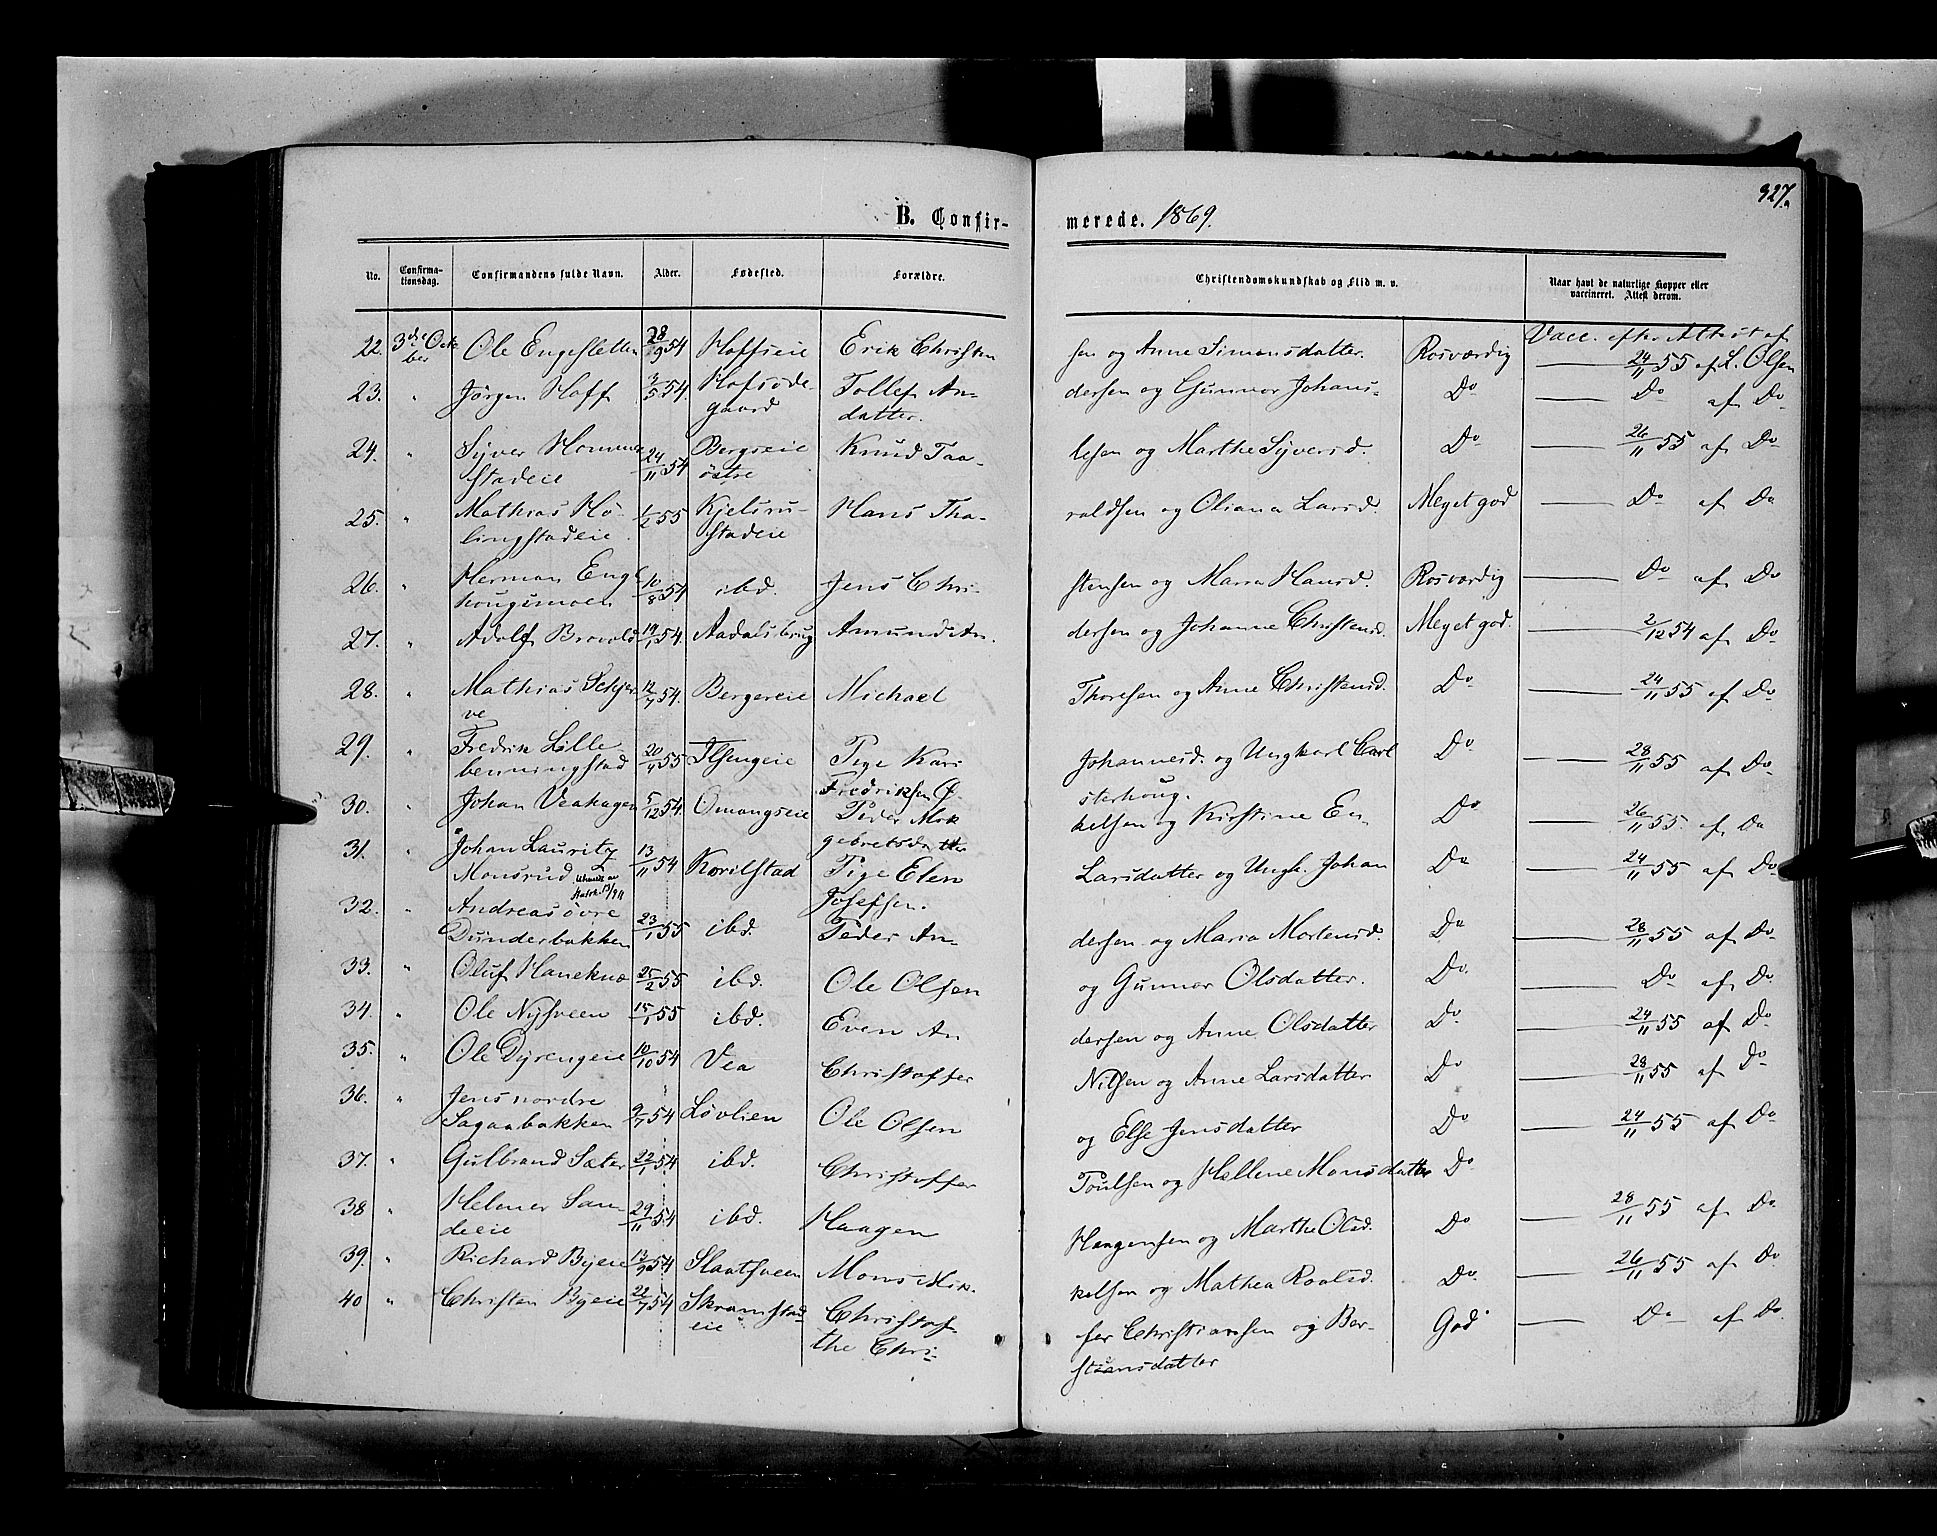 327.
B. Confir-merede. 1869.
No. Confirma-tionsdag. Confirmandens fulde Navn. Alder. Fødested. Forældre. Christendomskundskab og Flid m. v. Naar havt de naturlige Kopper eller vaccineret. Attest derom.
Vacc. efter Attest af
22. 3die Octber Ole Engesletten 28/9 54 Hoffseie Erik Christensen og Anne Simonsdatter. Rosværdig 24/11 55 af L. Olsen
23. " Jörgen Hoff 3/5 54. Hofsöde-
gaard Tollef An-dersen og Gunnor Johans-
datter. Do Do af Do
24. " Syver Homme
stadeie 24/11 54 Bergseie
östre Knud Taa-lesen og Marthe Syversd. Do 26/11 55 af Do
25. " Mathias Hö-
lingstadeie 1/2 55 Kjelsru-
stadeie Hans Tha-raldsen og Oliana Larsd. Meget god Do af Do
26. " Herman Enge
hougsmoen 10/8 54 ibd. Jens Chri-stensen og Maria Hansd. Rosværdig Do af Do
27. " Adolf Brovold 14/1 54. Aadalsbrug Amund An-dersen og Johanne Christensd. Meget god. 2/12 54 af Do
28. " Mathias Schjer
ve 12/7 54. Bergereie Michael Thoresen og Anne Christensd. Do 24/11 55 af Do
29. " Fredrik Lille-
benningstad 20/4 55 Ilsengeie Pige Kari Johannesd. og Ungkarl Carl
Fredriksen Ö-sterhoug. Do 28/11 55 af Do
30. " Johan Veahagen 5/12 54. Omangseie Peder Mik-kelsen og Kirstine En-
gebretsdatter Do 26/11 55. af Do
31. " Johan Lauritz
Monsrud 13/11 54 Korilstad Pige Elen Larsdatter og Ungk. Johan
Josefsen. Do 24/11 55 af Do
32. " Andreas övre
Dunderbakken 23/1 55 ibd. Peder An-dersen og Maria Mortensd. Do 28/11 55 af Do
33. " Oluf Haneknæ 25/2 55 ibd. Ole Olsen og Gunnor Olsdatter. Do Do af Do
34. " Ole Nysveen 15/1 55 ibd. Even An-dersen og Anne Olsdatter Do 24/11 55 af Do
35. " Ole Dyrengeie 10/10 54 Vea Christoffer Nilsen og Anne Larsdatter Do 28/11 55 af Do
36. " Jens nordre
Sagaabakken 9/7 54 Lövlien Ole Olsen og Else Jensdatter Do 24/11 55 af Do
37. " Gulbrand Sæter 22/1 54 ibd. Christoffer Poulsen og Hellene Monsdatter Do
38 " Helmer San-
deeie 29/11 54 ibd. Haagen Haagensen og Marthe Olsd. Do 28/11 55 af Do
39. " Richard Byeie 13/9 54 Slaatsveen Mons Mik-kelsen og Mathea Roalsd. Do 26/11 55 af Do
40 " Christen Byeie 22/7 54 Skramstad-
eie Christof-fer Christiansen og Ber-
the Chri-stiansdatter God Do af Do